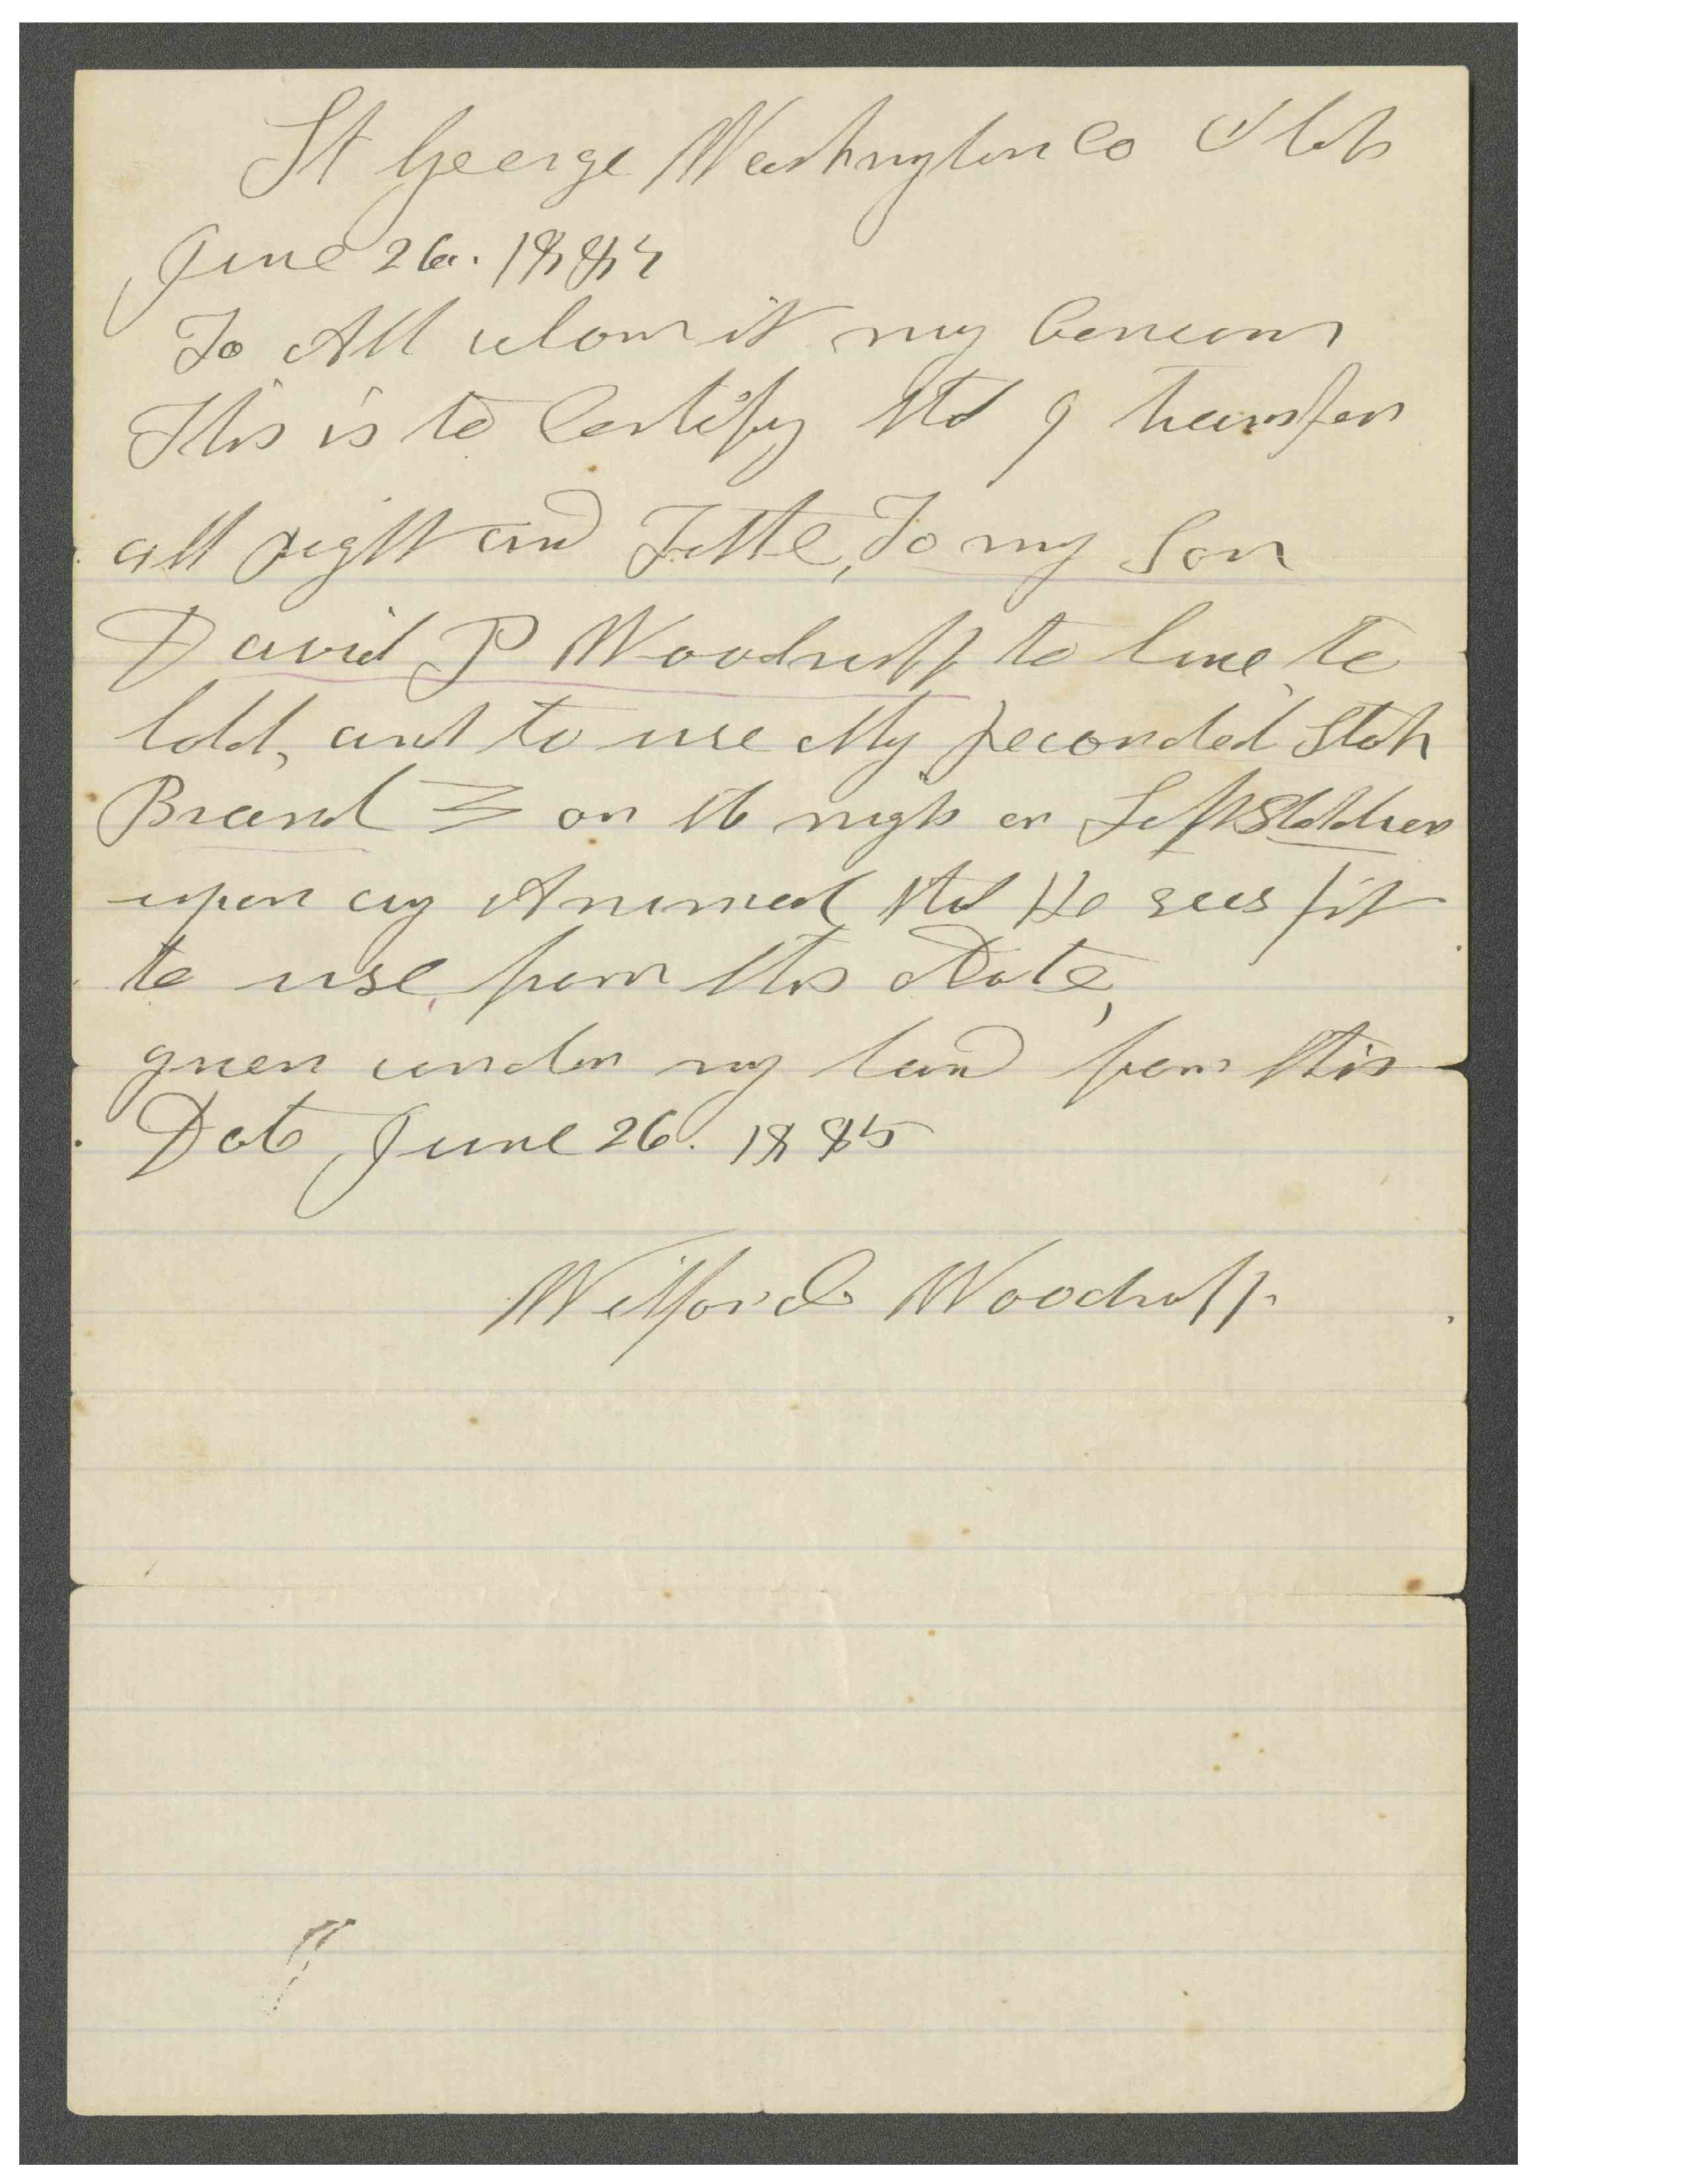 St George Washington Co Utah
June 26. 1885
To All whom it my Concern
This is to Certify that I transfer
all right and Title, To my Son
David P Woodruff to have to
hold, and to use My recorded Stock
Brand on the right or Left Shoulder
upon any Animal that He sees fit
to use, from this Date,
given under my hand from this
Date June 26. 1885
Wilford Woodruff